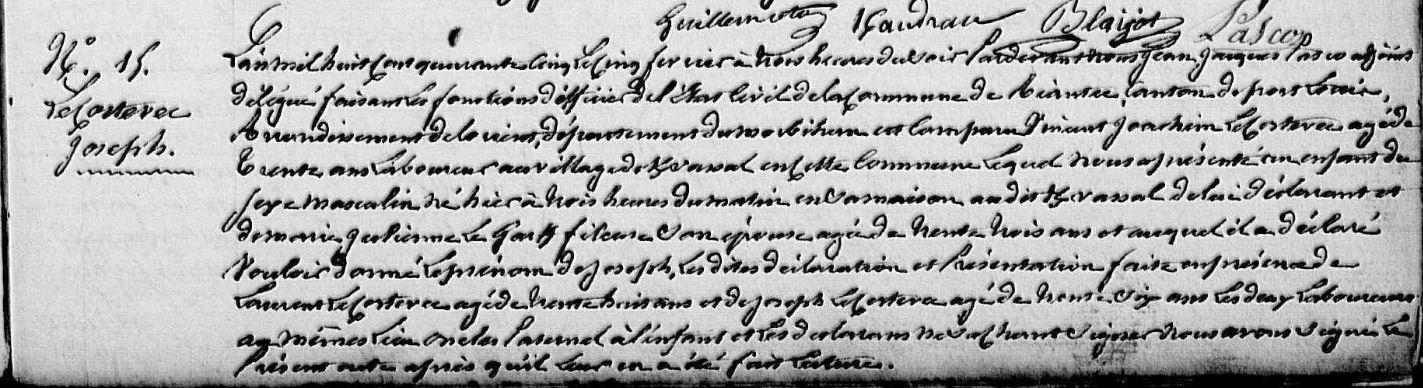 Guillemoto Kaudran Blayot Lasco
N.º 15.
Le Corterec
Joseph.
L'an mil huit cent quarante cinq le cinq fevrier à trois heures du soir Pardevant nous Jean Jacques Lasco adjoint
délégué faisant les fonctions d'officier de l'état Civil de la Commune de Riantec, canton de port Louis,
Arrondissement de lorient, département du morbihan est Comparu Vincent Joachim Le Corterec agé de
trente ans Laboureur au village de Kvasal en Cette Commune Lequel nous a présenté un enfant du
sexe masculin né hier à trois heures du matin en Sa maison au dit Kvassal de lui déclarant et
de marie Julienne Le fileuse Son épouse agé de trente trois ans et auquel il a déclaré
Vouloir donné Le prénom de Joseph, Les dites déclaration et Présentation faite en présence de
Laurent Le Corterec agé de trente huit ans et de Joseph Le Corterec agé de trente Six ans Les deux Laboureurs
au mêmes Lieu oncles Paternel à l'enfant et Les declarans ne Sachant Signer Nous avons Signé Le
Présent acte après qu'il Leur en a été fait Lecture.